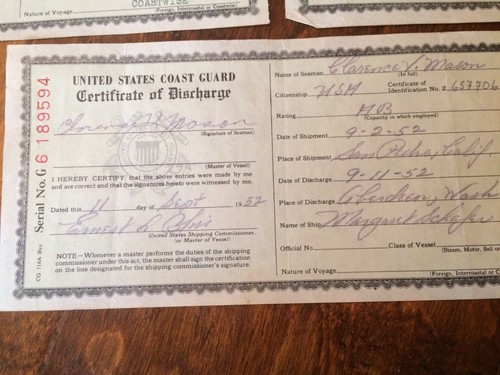 Nature of Voyage
COASTWISE
(Foreign, Intercoastal or Coastwise)
Nature of Voyage
(Foreign, Intercoastal or Coastwise)
Serial No. G 6 189594
CG 718A Rev
UNITED STATES COAST GUARD
Certificate of Discharge
(Signature of Seaman)
(Master of Vessel)
I HEREBY CERTIFY, that the above entries were made by me
and are correct and that the signatures hereto were witnessed by me.
Dated this 11 day of Sept 1952
United States Shipping Commissioner,
(or Master of Vessel)
NOTE—Whenever a master performs the duties of the shipping
commissioner under this act, the master shall sign the certification
on the line designated for the shipping commissioner's signature.
Name of Seaman Clarence V. Mason
(In full)
Citizenship USA Certificate of
Identification No. Z 657706
Rating MB
(Capacity in which employed)
Date of Shipment 9-2-52
Place of Shipment San Pedro, Calif
Date of Discharge 9-11-52
Place of Discharge Aberdeen, Wash
Name of Ship Margaret Schafer
Official No. Class of Vessel
(Steam, Motor, Sail or
Nature of Voyage
(Foreign, Intercoastal or Coastwise)